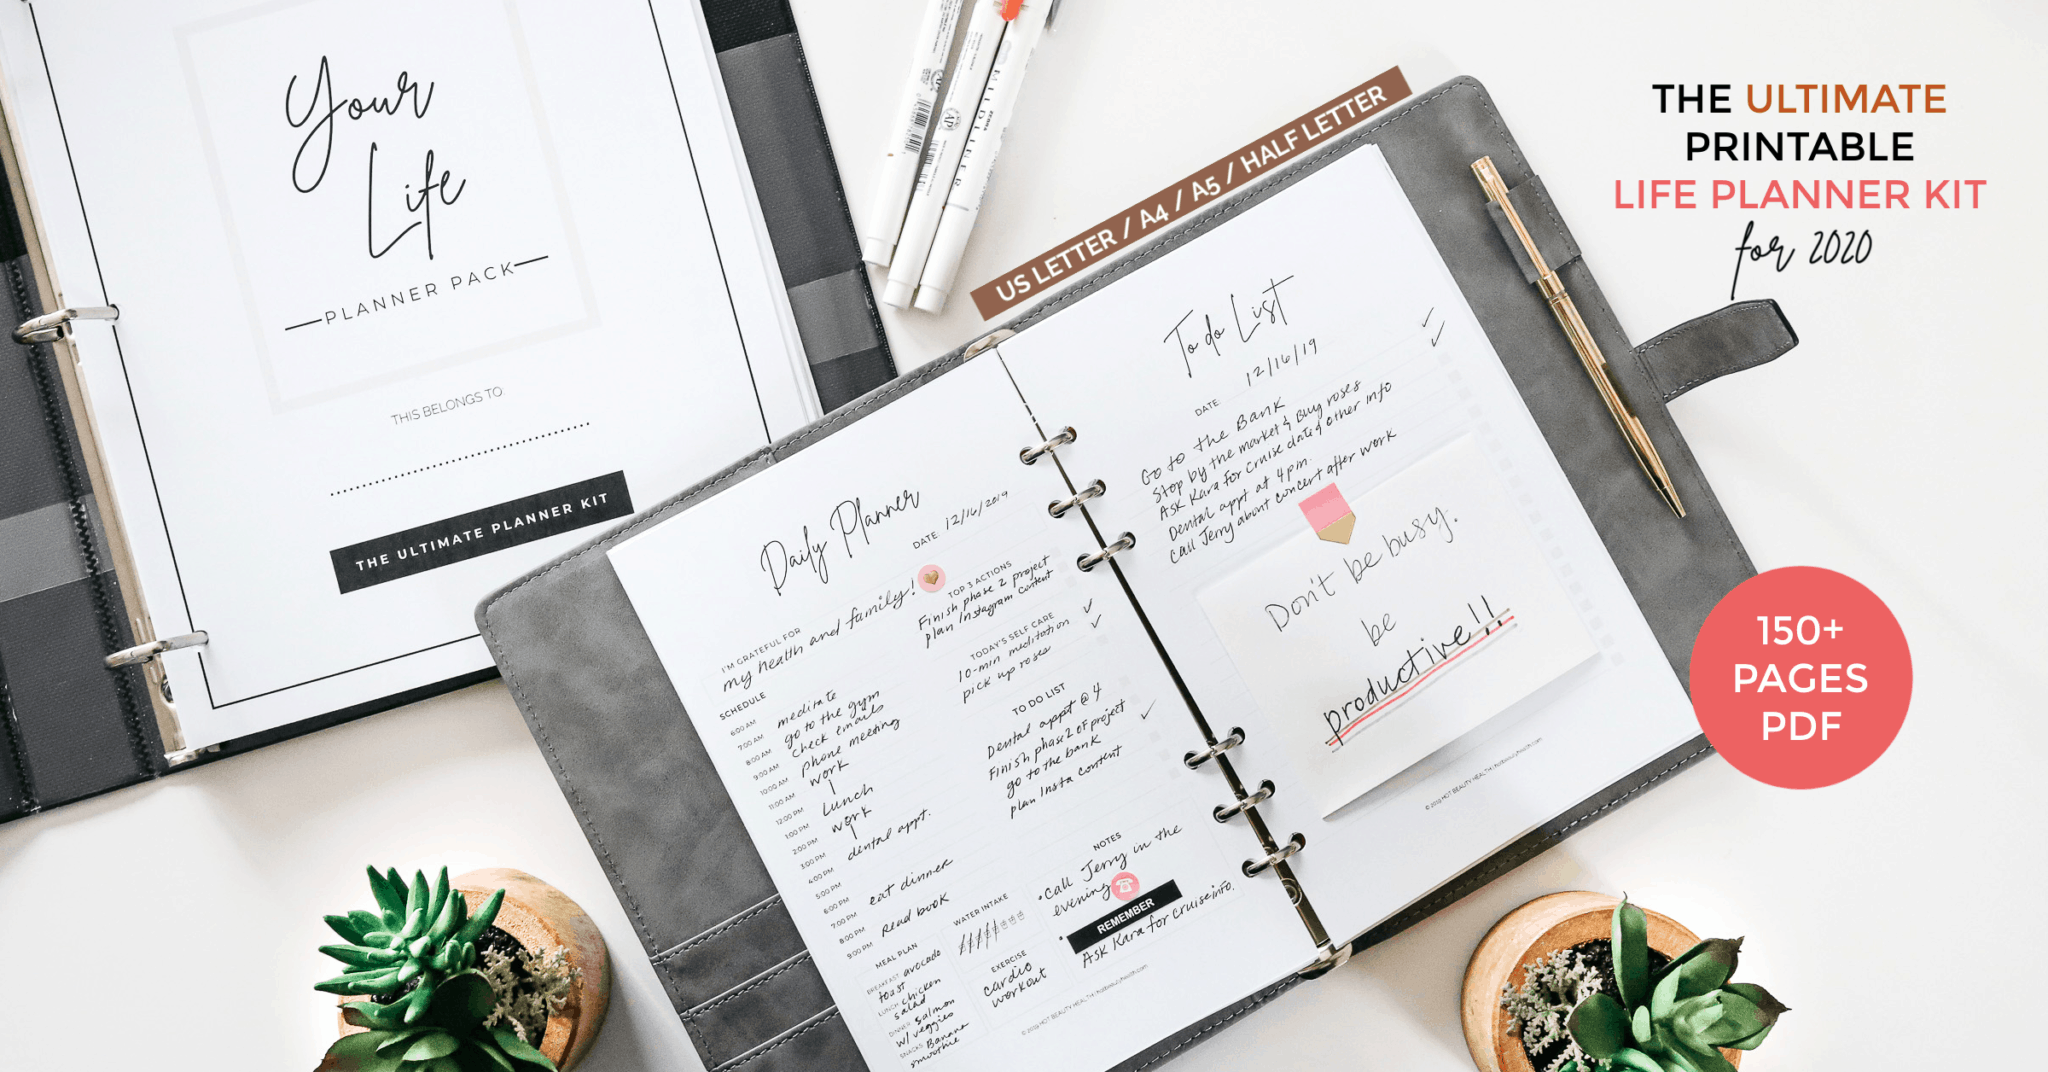 Your
Life
PLANNER PACK
THIS BELONGS TO:
THE ULTIMATE PLANNER KIT
MILDLINER
US LETTER / A4 / A5 / HALF LETTER
THE ULTIMATE
PRINTABLE
LIFE PLANNER KIT
for 2020
150+
PAGES
PDF
Daily Planner
DATE: 12/16/2019
I'M GRATEFUL FOR
my health and family!
SCHEDULE
6:00 AM meditate
7:00 AM go to the gym
8:00 AM check emails
9:00 AM phone meeting
10:00 AM work
11:00 AM
12:00 PM Lunch
1:00 PM work
2:00 PM
3:00 PM dental appt.
4:00 PM
5:00 PM
6:00 PM eat dinner
7:00 PM
8:00 PM read book
9:00 PM
TOP 3 ACTIONS
Finish phase 2 project
plan Instagram content
TODAY'S SELF CARE
10-min meditation
pick up roses
TO DO LIST
Dental appt @ 4
Finish phase 2 of project
go to the bank
plan Insta content
NOTES
• Call Jerry in the
evening
REMEMBER
• Ask Kara for cruise info.
MEAL PLAN
BREAKFAST: avocado
toast
LUNCH: chicken
salad
DINNER: salmon
w/ veggies
SNACKS: Banana
smoothie
WATER INTAKE
EXERCISE
cardio
workout
© 2019 HOT BEAUTY HEALTH | hotbeautyhealth.com
To do List
DATE: 12/16/19
Go to the Bank
Stop by the market & Buy roses
Ask Kara for cruise date & other info
Dental appt at 4pm.
Call Jerry about concert after work
Don't be busy.
be
productive!!
© 2019 HOT BEAUTY HEALTH | hotbeautyhealth.com